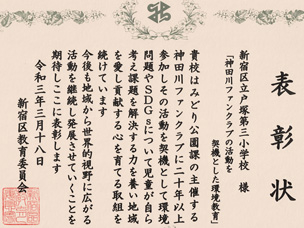 表彰状
新宿区立戸塚第三小学校 様
「神田川ファンクラブの活動を
契機とした環境教育」
貴校はみどり公園課の主催する
神田川ファンクラブに二十年以上
参加しその活動を契機として環境
問題やSDGsについて児童が自ら
考え課題を解決する力を養い地域
を愛し貢献する心を育てる取組を
続けています
今後も地域から世界的視野に広がる
活動を継続し発展させていくことを
期待しここに表彰します
令和三年三月十八日
新宿区教育委員会